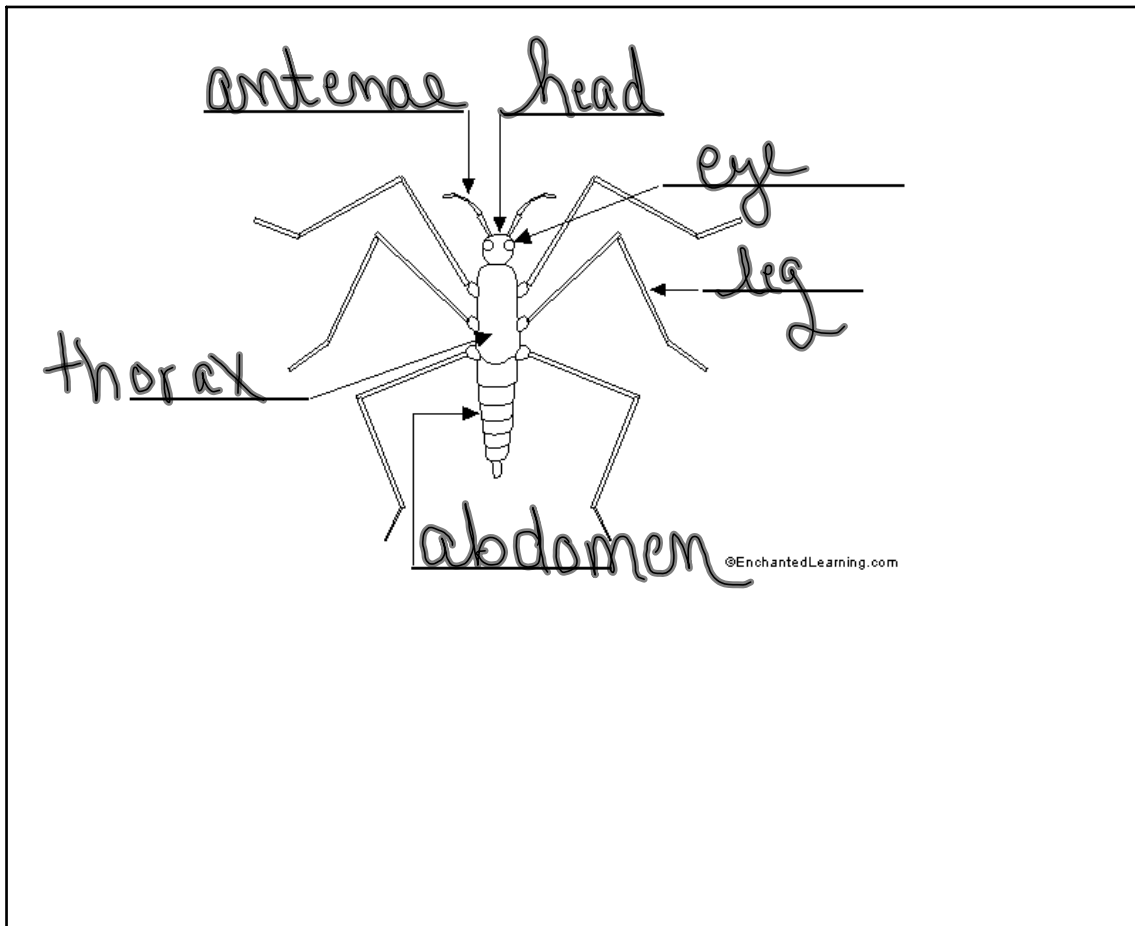 antenae head
eye
leg
thorax
abdomen
©EnchantedLearning.com